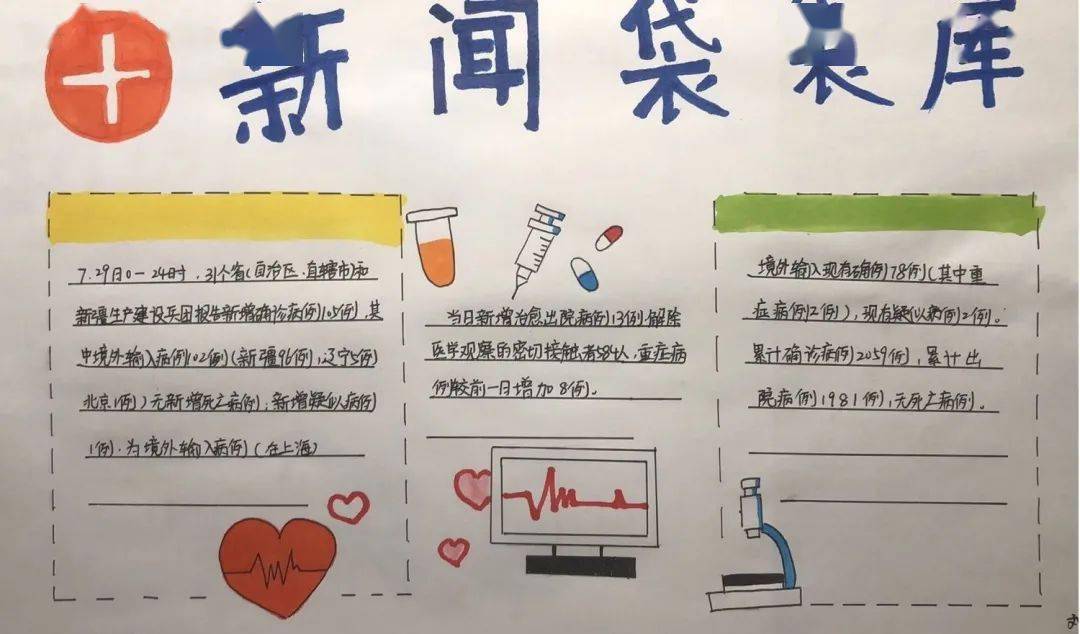 新闻袋袋库
7.29日0-24时,31个省(自治区、直辖市)和
新疆生产建设兵团报告新增确诊病例105例,其
中境外输入病例102例(新疆96例,辽宁5例
北京1例)无新增死亡病例;新增疑似病例
1例,为境外输入病例(在上海)
当日新增治愈出院病例13例,解除
医学观察的密切接触者584人,重症病
例较前一日增加8例。
境外输入现有确例78例(其中重
症病例2例),现有疑似病例2例。
累计确诊病例2059例,累计出
院病例1981例,无死亡病例。